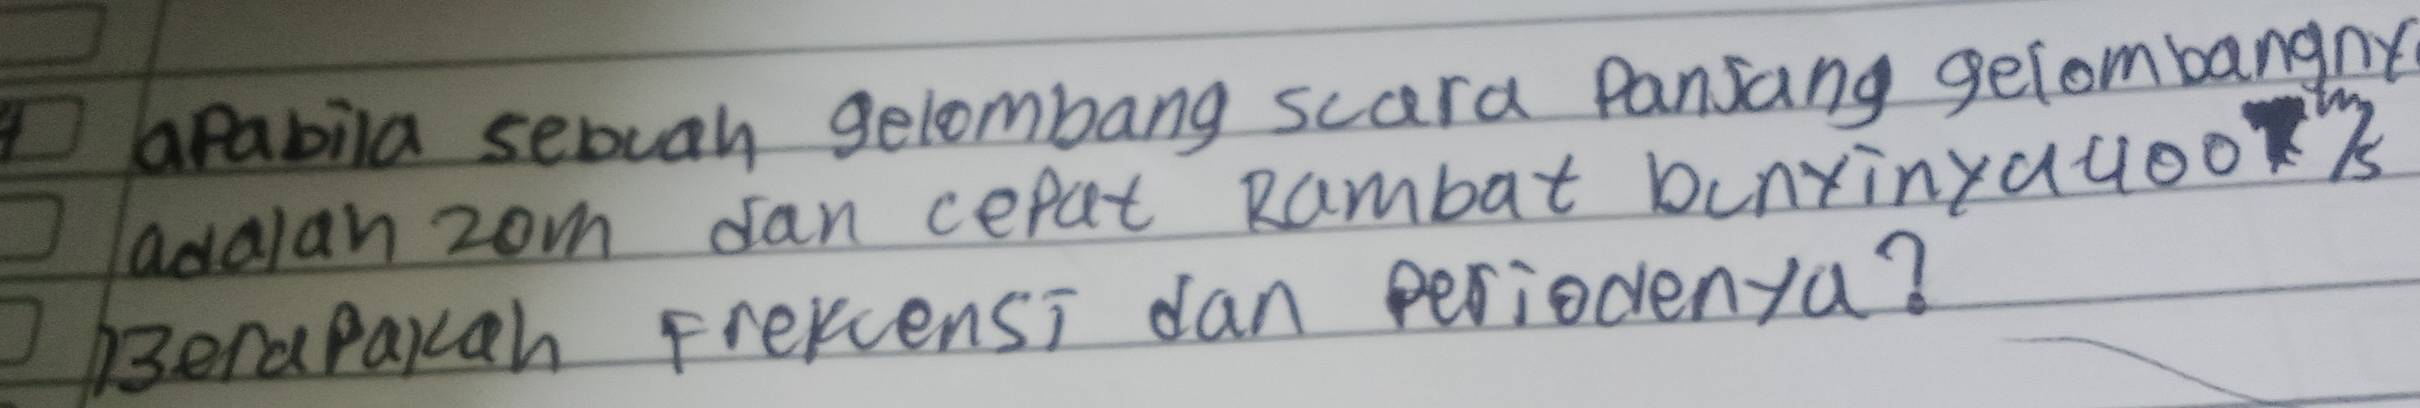 4 apabila sebuah gelombang scara Panjang gelombangny
adalah 20m dan cepat Rambat bunyinya 400 m/s
Berapakah Frekuensi dan periodenya?